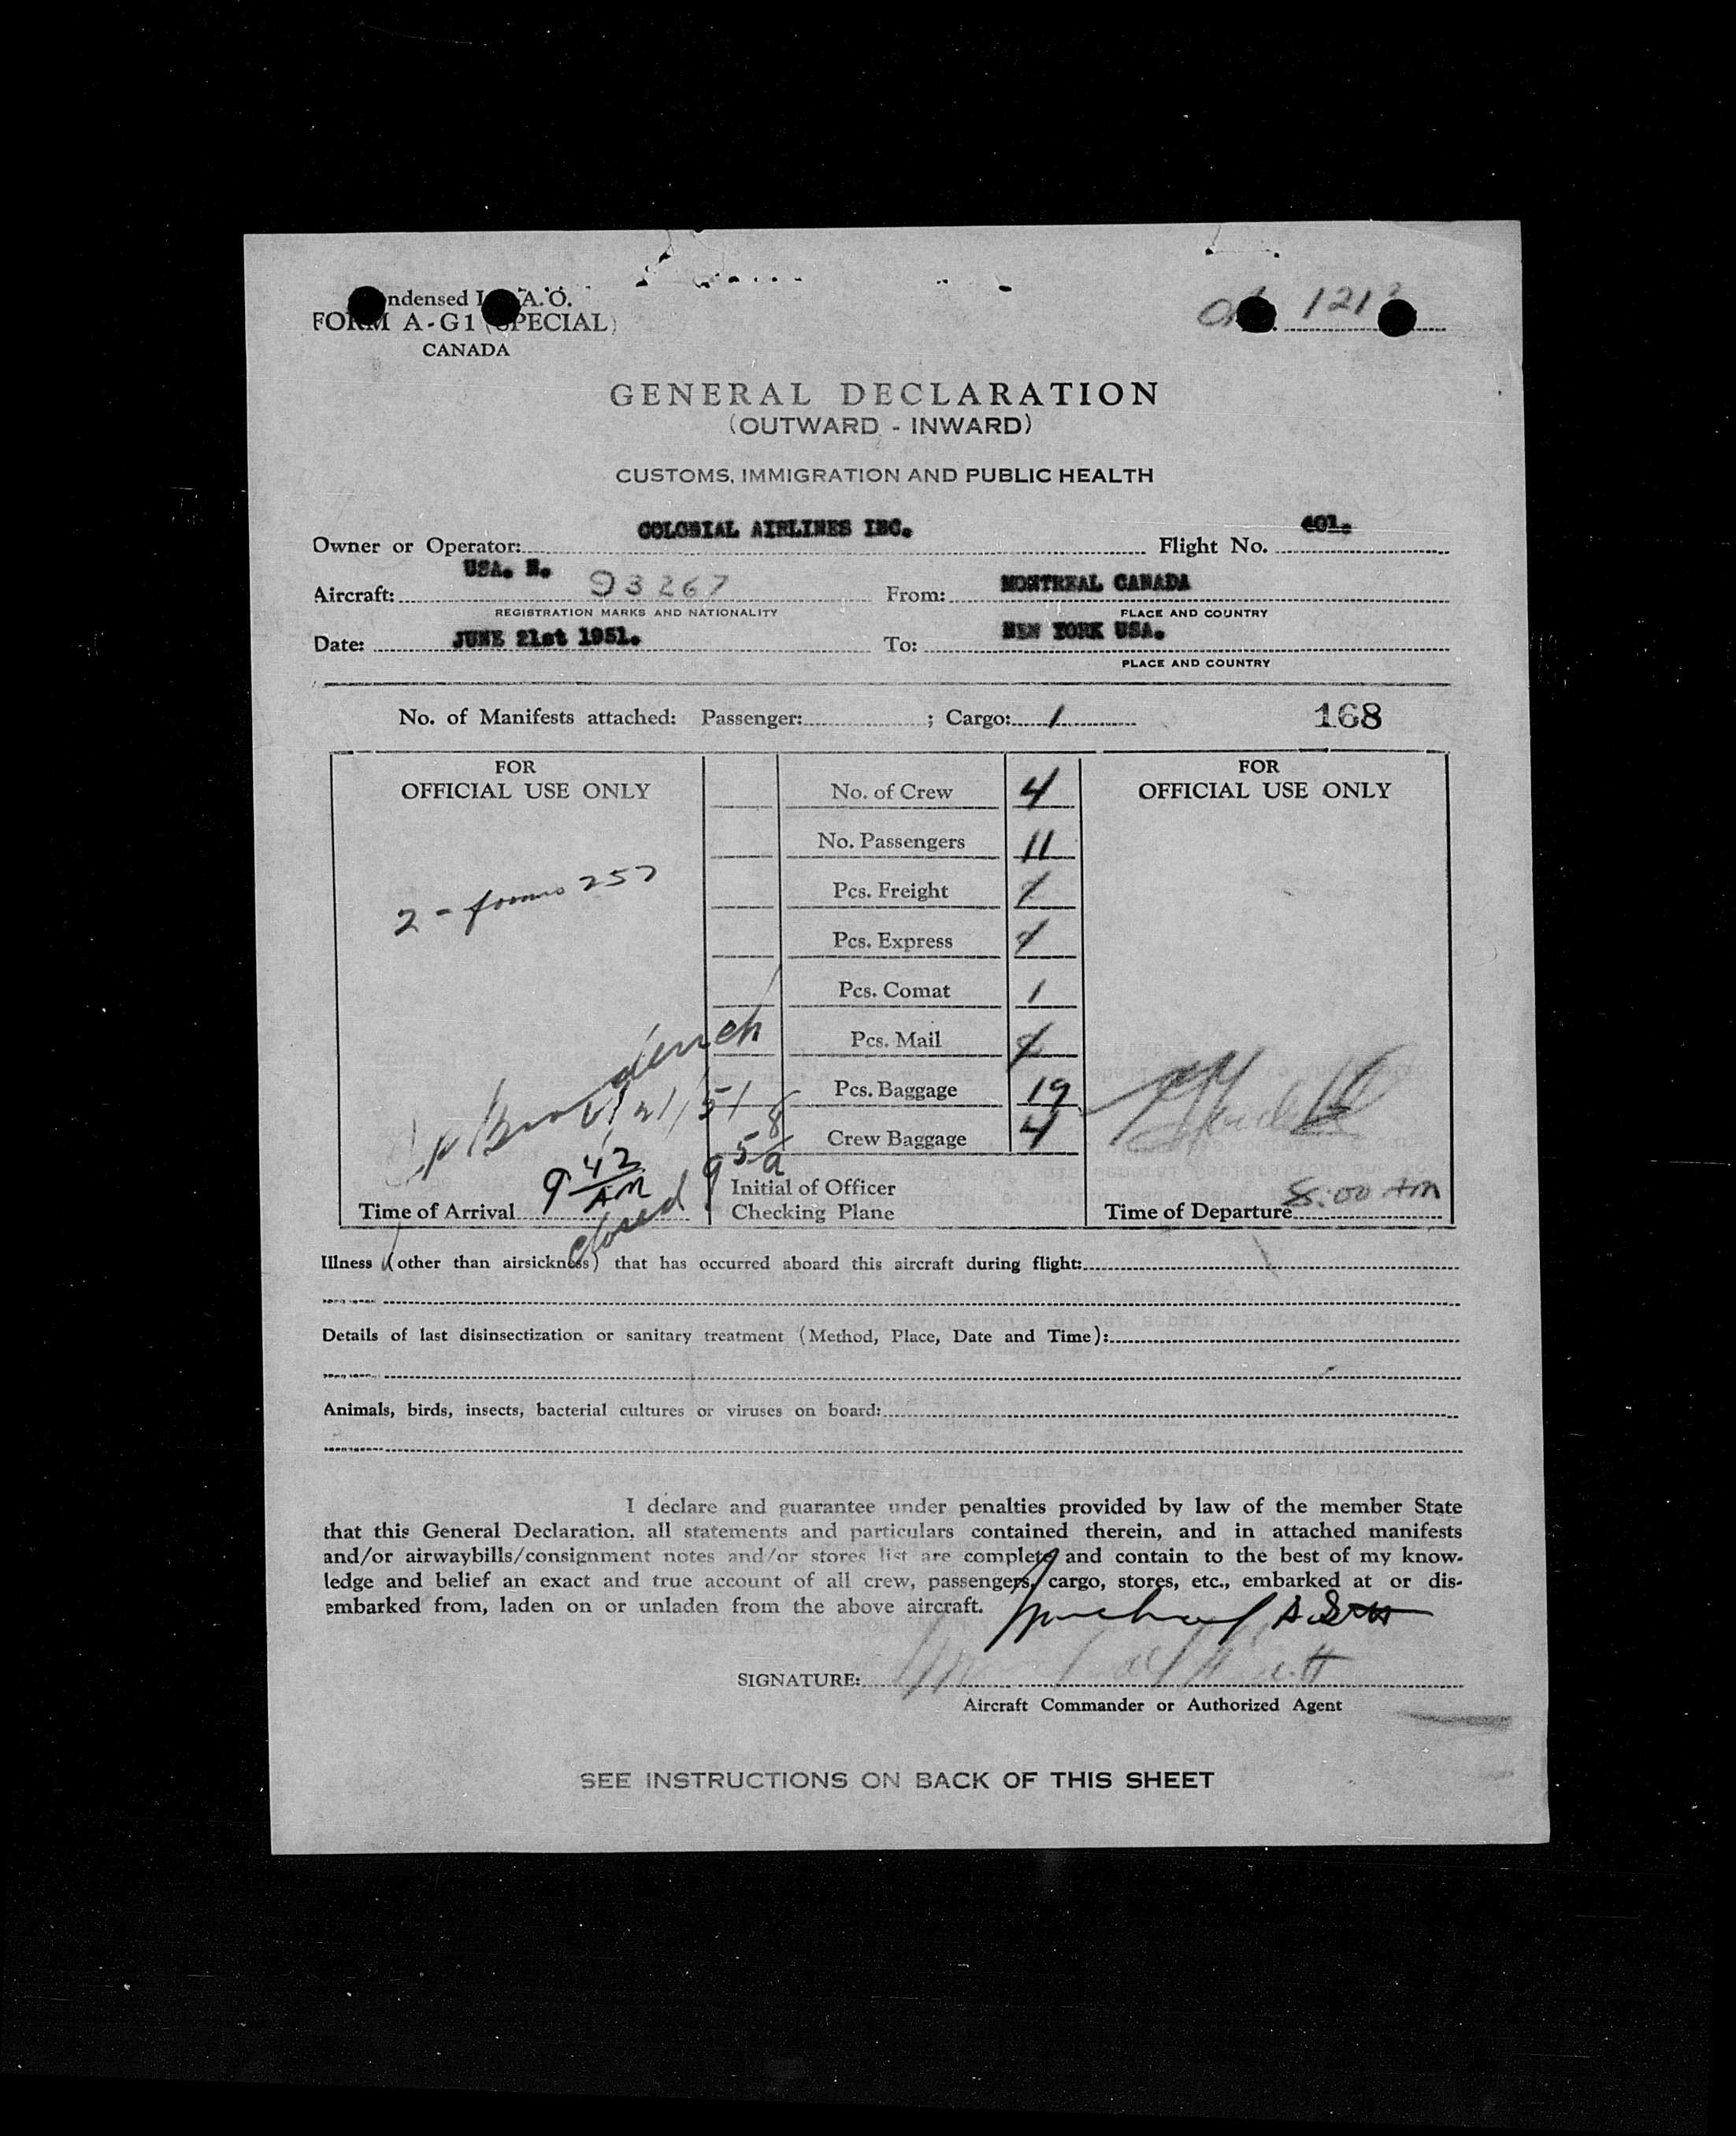 Condensed I.C.A.O.
FORM A-G1 (SPECIAL)
CANADA
GENERAL DECLARATION
(OUTWARD - INWARD)
CUSTOMS, IMMIGRATION AND PUBLIC HEALTH
Owner or Operator: COLONIAL AIRLINES INC. Flight No. 401.
Aircraft: USA. N. 93267 From: MONTREAL CANADA
REGISTRATION MARKS AND NATIONALITY PLACE AND COUNTRY
Date: JUNE 21st 1951. To: NEW YORK USA.
PLACE AND COUNTRY
No. of Manifests attached: Passenger: ; Cargo: 1 168
FOR
OFFICIAL USE ONLY
2 - forms 257
6/21/51
9 42 AM
Time of Arrival
closed 9 58 a
No. of Crew 4
No. Passengers 11
Pcs. Freight
Pcs. Express
Pcs. Comat 1
Pcs. Mail
Pcs. Baggage 19
Crew Baggage 4
Initial of Officer
Checking Plane
FOR
OFFICIAL USE ONLY
Time of Departure 8:00 AM
Illness (other than airsickness) that has occurred aboard this aircraft during flight:
Details of last disinsectization or sanitary treatment (Method, Place, Date and Time):
Animals, birds, insects, bacterial cultures or viruses on board:
I declare and guarantee under penalties provided by law of the member State
that this General Declaration, all statements and particulars contained therein, and in attached manifests
and/or airwaybills/consignment notes and/or stores list are complete and contain to the best of my know-
ledge and belief an exact and true account of all crew, passengers, cargo, stores, etc., embarked at or dis-
embarked from, laden on or unladen from the above aircraft.
SIGNATURE:
Aircraft Commander or Authorized Agent
SEE INSTRUCTIONS ON BACK OF THIS SHEET